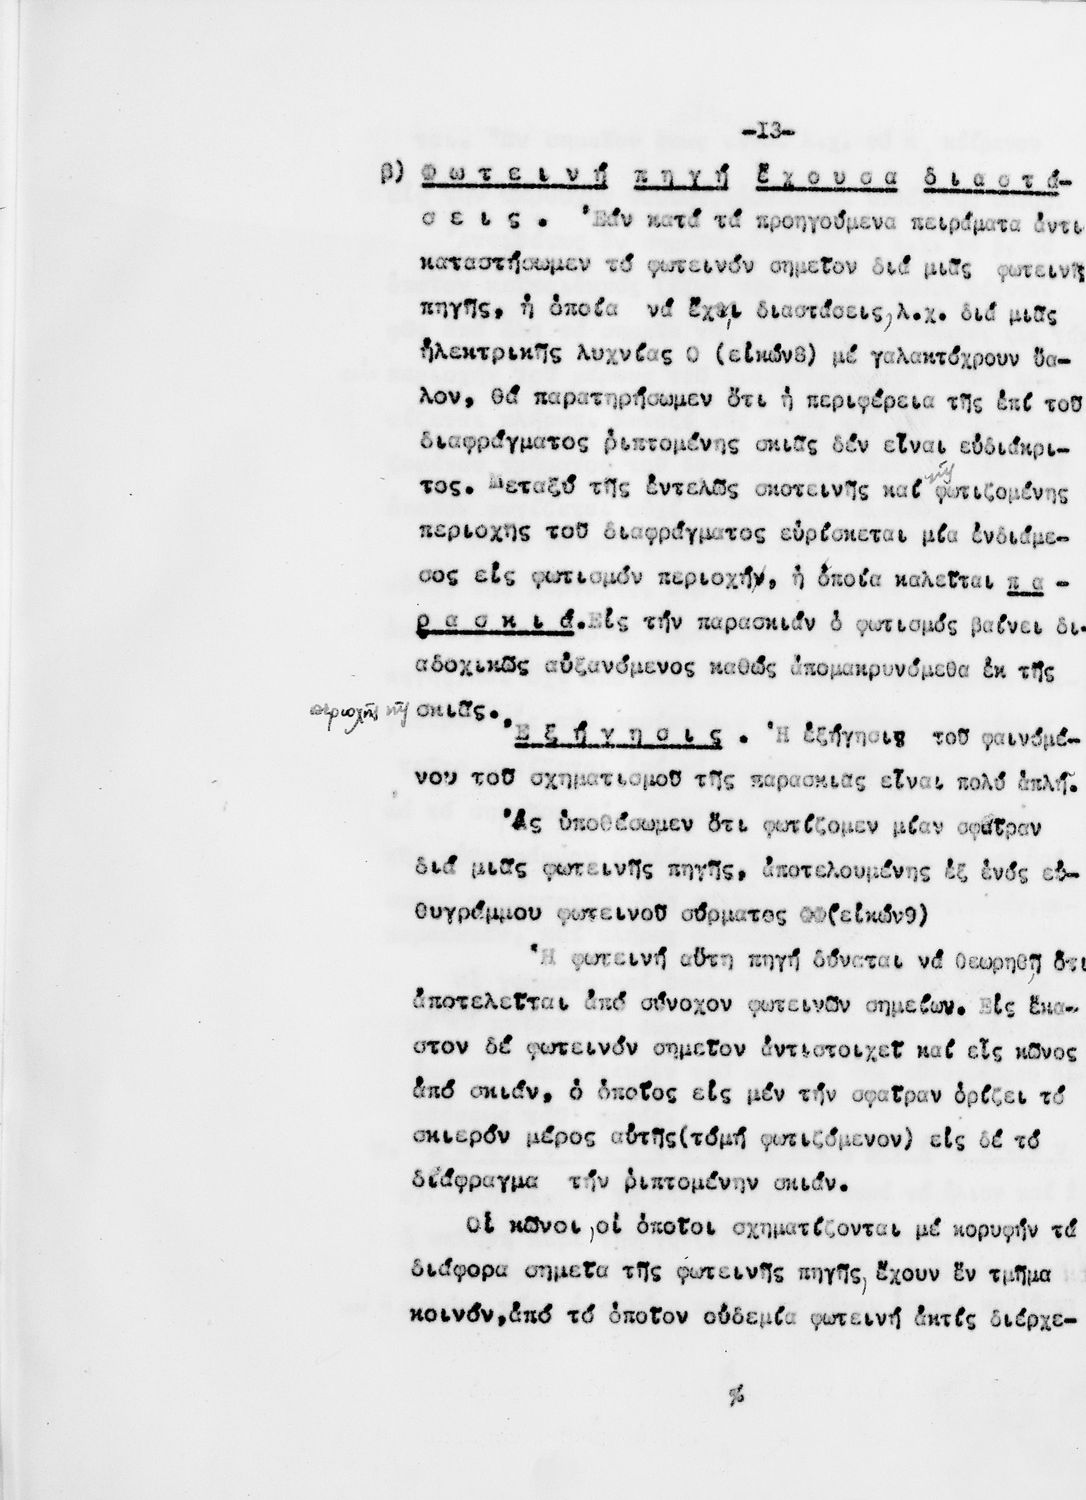 -13-
β) Φ ω τ ε ι ν ή π η γ ή ἔ χ ο υ σ α δ ι α σ τ ά-
σ ε ι ς . Ἐάν κατά τά προηγούμενα πειράματα ἀντι
καταστήσωμεν τό φωτεινόν σημεῖον διά μιᾶς φωτεινῆς
πηγῆς, ἡ ὁποία νά ἔχει διαστάσεις, λ.χ. διά μιᾶς
ἠλεκτρικῆς λυχνίας Ο (εἰκών8) μέ γαλακτόχρουν ὕα-
λον, θά παρατηρήσωμεν ὅτι ἡ περιφέρεια τῆς ἐπί τοῦ
διαφράγματος ῥιπτομένης σκιᾶς δέν εἶναι εὐδιάκρι-
τῆς
τος. Μεταξύ τῆς ἐντελῶς σκοτεινῆς καί φωτιζομένης
περιοχῆς τοῦ διαφράγματος εὑρίσκεται μία ἐνδιάμε-
σος εἰς φωτισμόν περιοχήν, ἡ ὁποία καλεῖται π α -
ρ α σ κ ι ά.Εἰς τήν παρασκιάν ὁ φωτισμός βαίνει δι-
αδοχικῶς αὐξανόμενος καθώς ἀπομακρυνόμεθα ἐκ τῆς
περιοχῆς τῆς σκιᾶς.
Ἐ ξ ή γ η σ ι ς . Ἡ ἐξήγησις τοῦ φαινομέ-
νου τοῦ σχηματισμοῦ τῆς παρασκιᾶς εἶναι πολύ ἁπλῆ.
Ἄς ὑποθέσωμεν ὅτι φωτίζομεν μίαν σφαῖραν
διά μιᾶς φωτεινῆς πηγῆς, ἀποτελουμένης ἐξ ἑνός εὐ-
θυγράμμου φωτεινοῦ σύρματος ΟΟ(εἰκών9)
Ἡ φωτεινή αὕτη πηγή δύναται νά θεωρηθῇ ὅτι
ἀποτελεῖται ἀπό σύνοχον φωτεινῶν σημείων. Εἰς ἕκα-
στον δέ φωτεινόν σημεῖον ἀντιστοιχεῖ καί εἷς κῶνος
ἀπό σκιάν, ὁ ὁποῖος εἰς μέν τήν σφαῖραν ὁρίζει τό
σκιερόν μέρος αὐτῆς(τόμή φωτιζόμενον) εἰς δέ τό
διάφραγμα τήν ῥιπτομένην σκιάν.
Οἱ κῶνοι, οἱ ὁποῖοι σχηματίζονται μέ κορυφήν τά
διάφορα σημεῖα τῆς φωτεινῆς πηγῆς, ἔχουν ἕν τμῆμα
κοινόν,ἀπό τό ὁποῖον οὐδεμία φωτεινή ἀκτίς διέρχε-
%